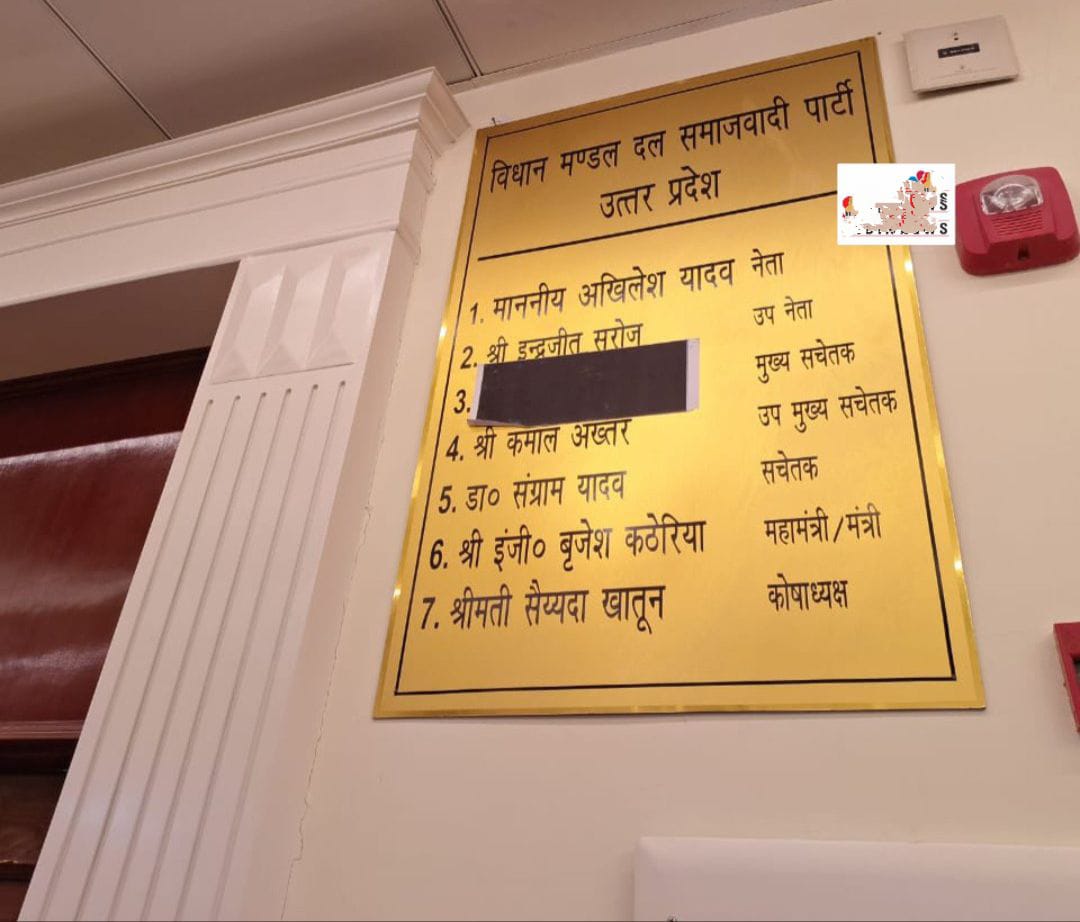 विधान मण्डल दल समाजवादी पार्टी
उत्तर प्रदेश
1. माननीय अखिलेश यादव नेता
2. श्री इन्द्रजीत सरोज उप नेता
3. मुख्य सचेतक
4. श्री कमाल अख्तर उप मुख्य सचेतक
5. डा० संग्राम यादव सचेतक
6. श्री इंजी० बृजेश कठेरिया महामंत्री/मंत्री
7. श्रीमती सैय्यदा खातून कोषाध्यक्ष